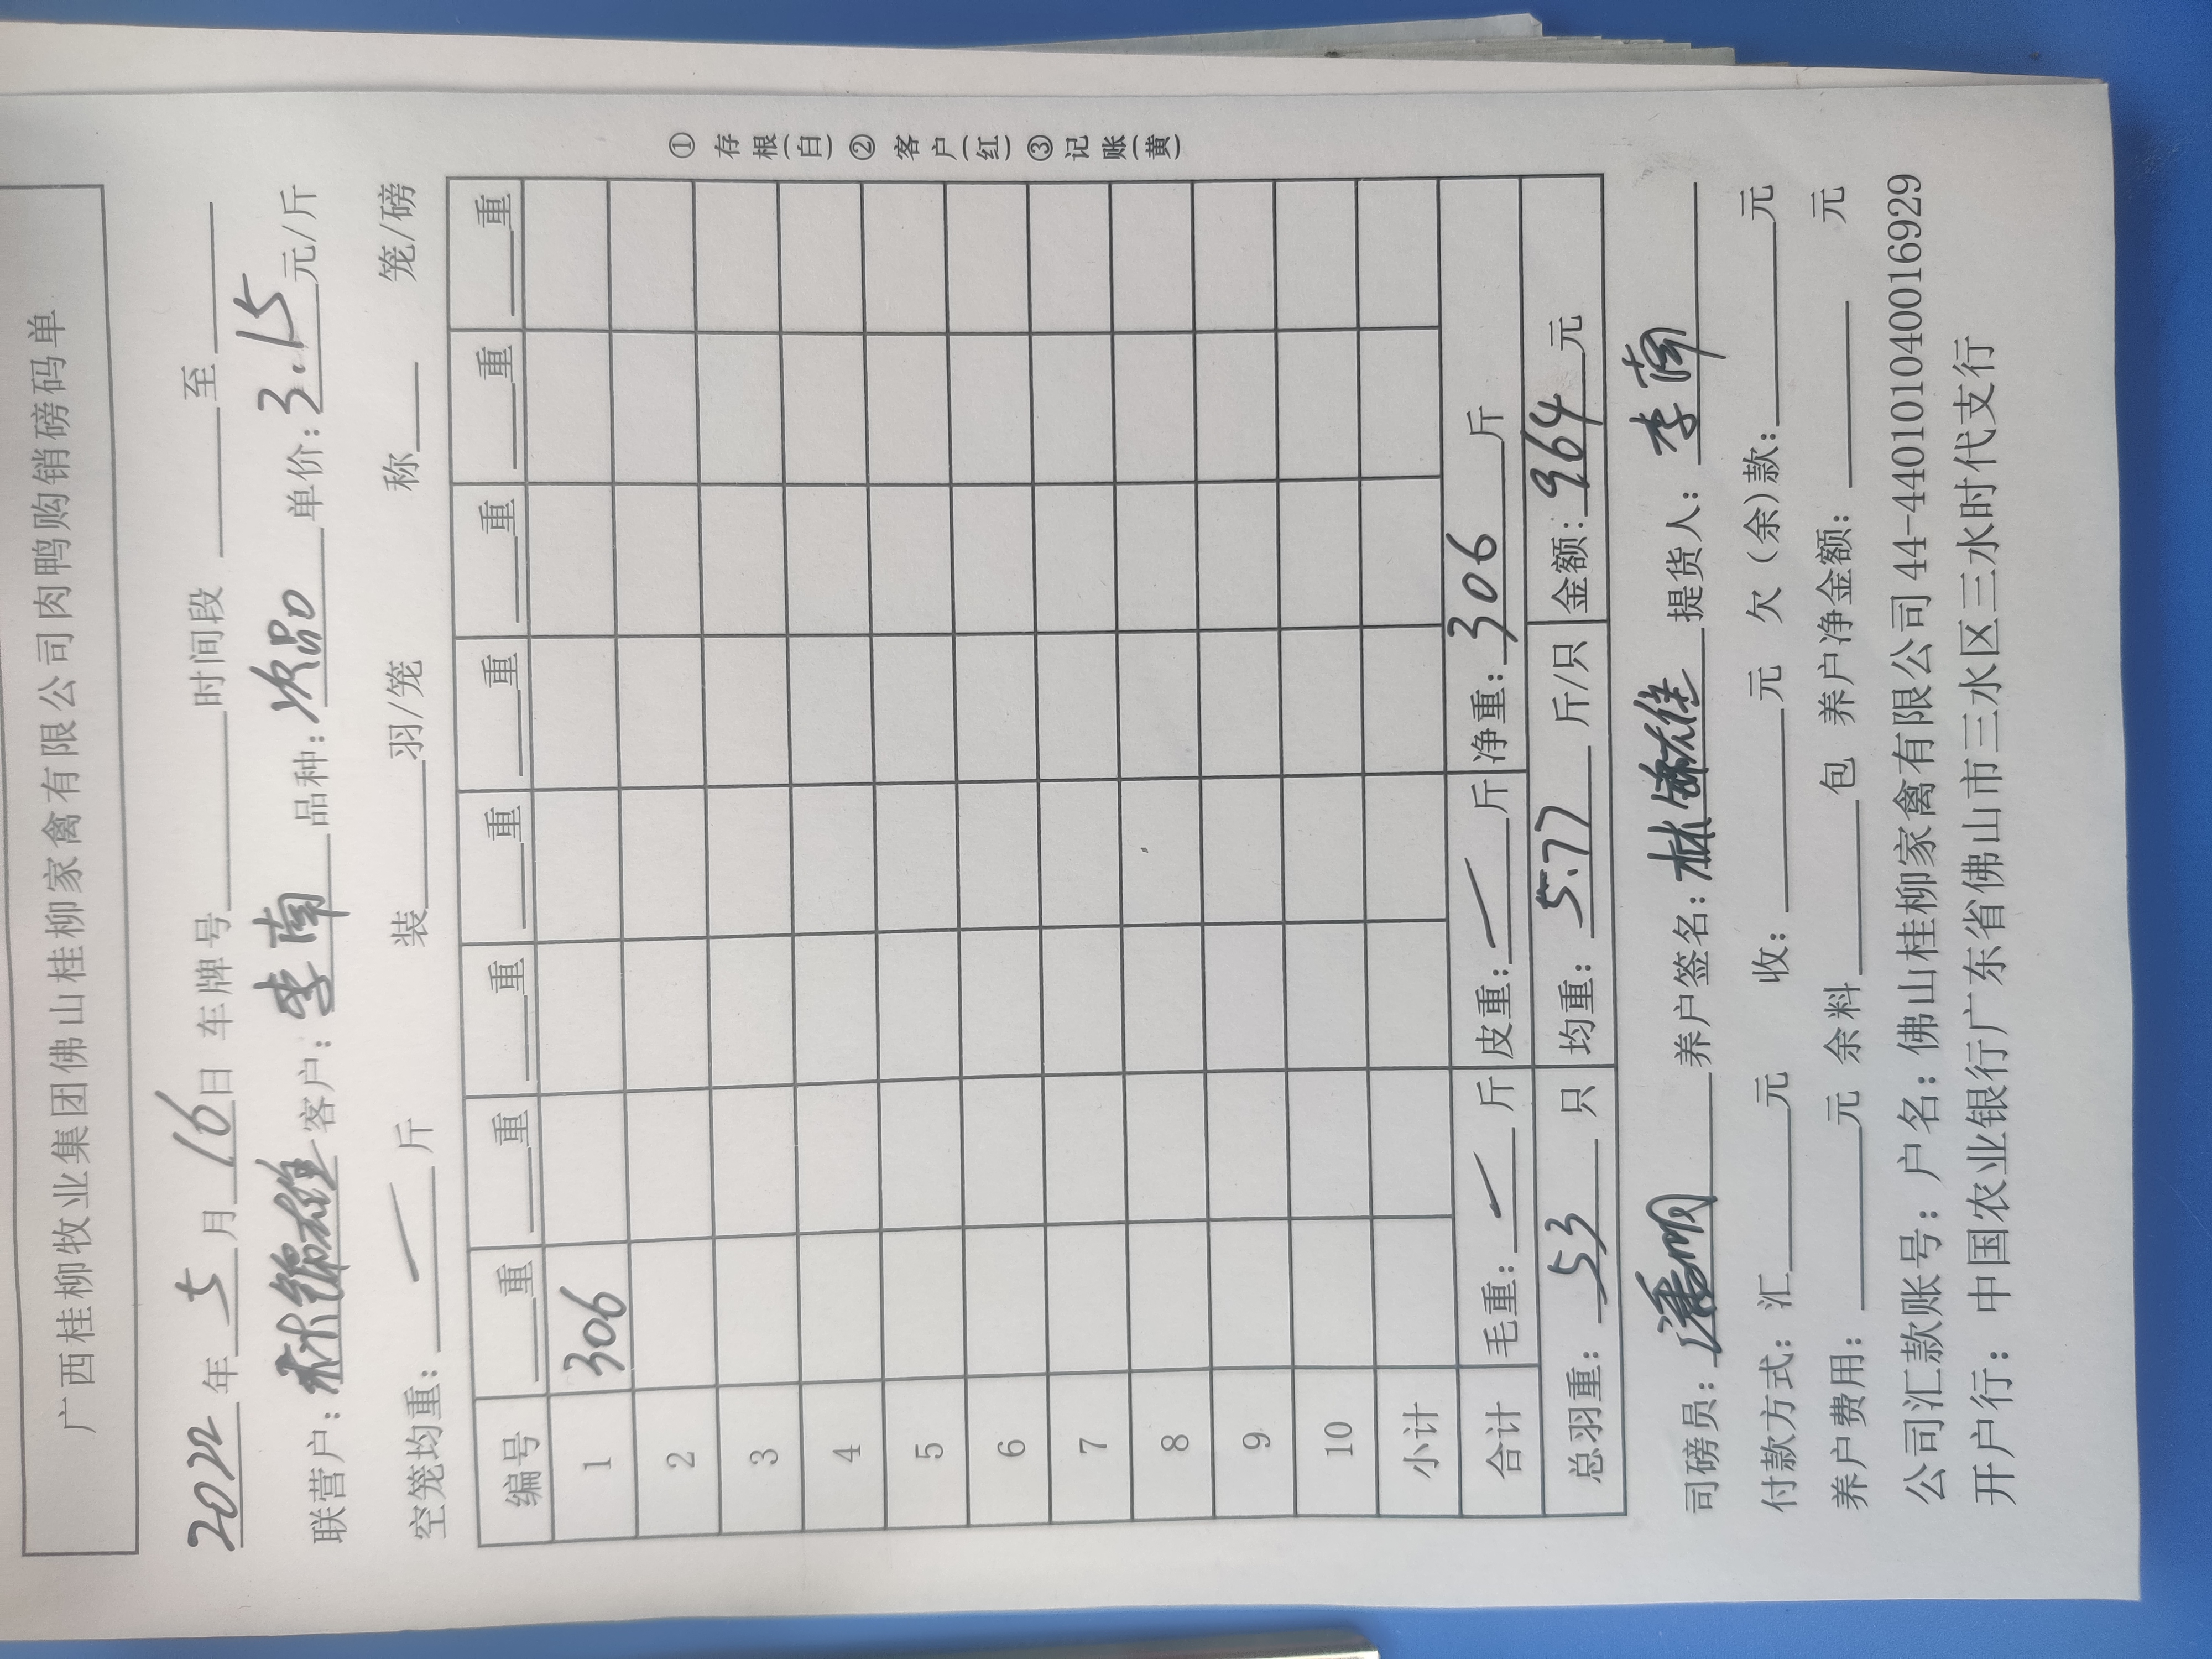 广西桂柳牧业集团佛山桂柳家禽有限公司肉鸭购销磅码单
2022年5月16日 车牌号 时间段 至
联营户：林锦雄 客户：李南 品种：次品 单价：3.15元/斤
空笼均重：一斤 装 羽/笼 称 笼/磅
编号 重 重 重 重 重 重 重 重
1 306
2
3
4
5
6
7
8
9
10
小计
合计 毛重：一斤 皮重：一斤 净重：306斤
总羽重：53只 均重：5.77斤/只 金额：964元
司磅员：潘明 养户签名：林锦雄 提货人：李南
付款方式：汇 元 收： 元 欠（余）款： 元
养户费用： 元 余料 包 养户净金额： 元
公司汇款账号：户名：佛山桂柳家禽有限公司 44-440101040016929
开户行：中国农业银行广东省佛山市三水区三水时代支行
① 存根(白) ② 客户(红) ③ 记账(黄)